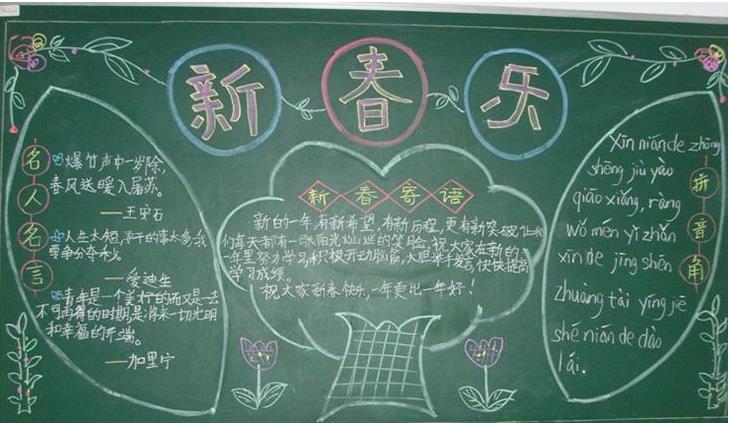 新春乐
名人名言
爆竹声中一岁除,
春风送暖入屠苏。
——王安石
人生太短,要干的事太多,我
要争分夺秒。
——爱迪生
青年是一个美好的而又是一去
不可再得的时期,是将来一切光明
和幸福的开端。
——加里宁
新春寄语
新的一年,有新希望,有新历程,更有新突破,让我
们每天都有一张阳光灿烂的笑脸,祝大家在新的
一年里努力学习,积极开动脑筋,大胆举手发言,快快提高
学习成绩。
祝大家新春快乐,一年更比一年好!
拼音角
Xīn nián de zhōng
shēng jiù yào
qiāo xiǎng, ràng
wǒ men yǐ zhǎn
xīn de jīng shén
zhuàng tài yíng jiē
shé nián de dào
lái.